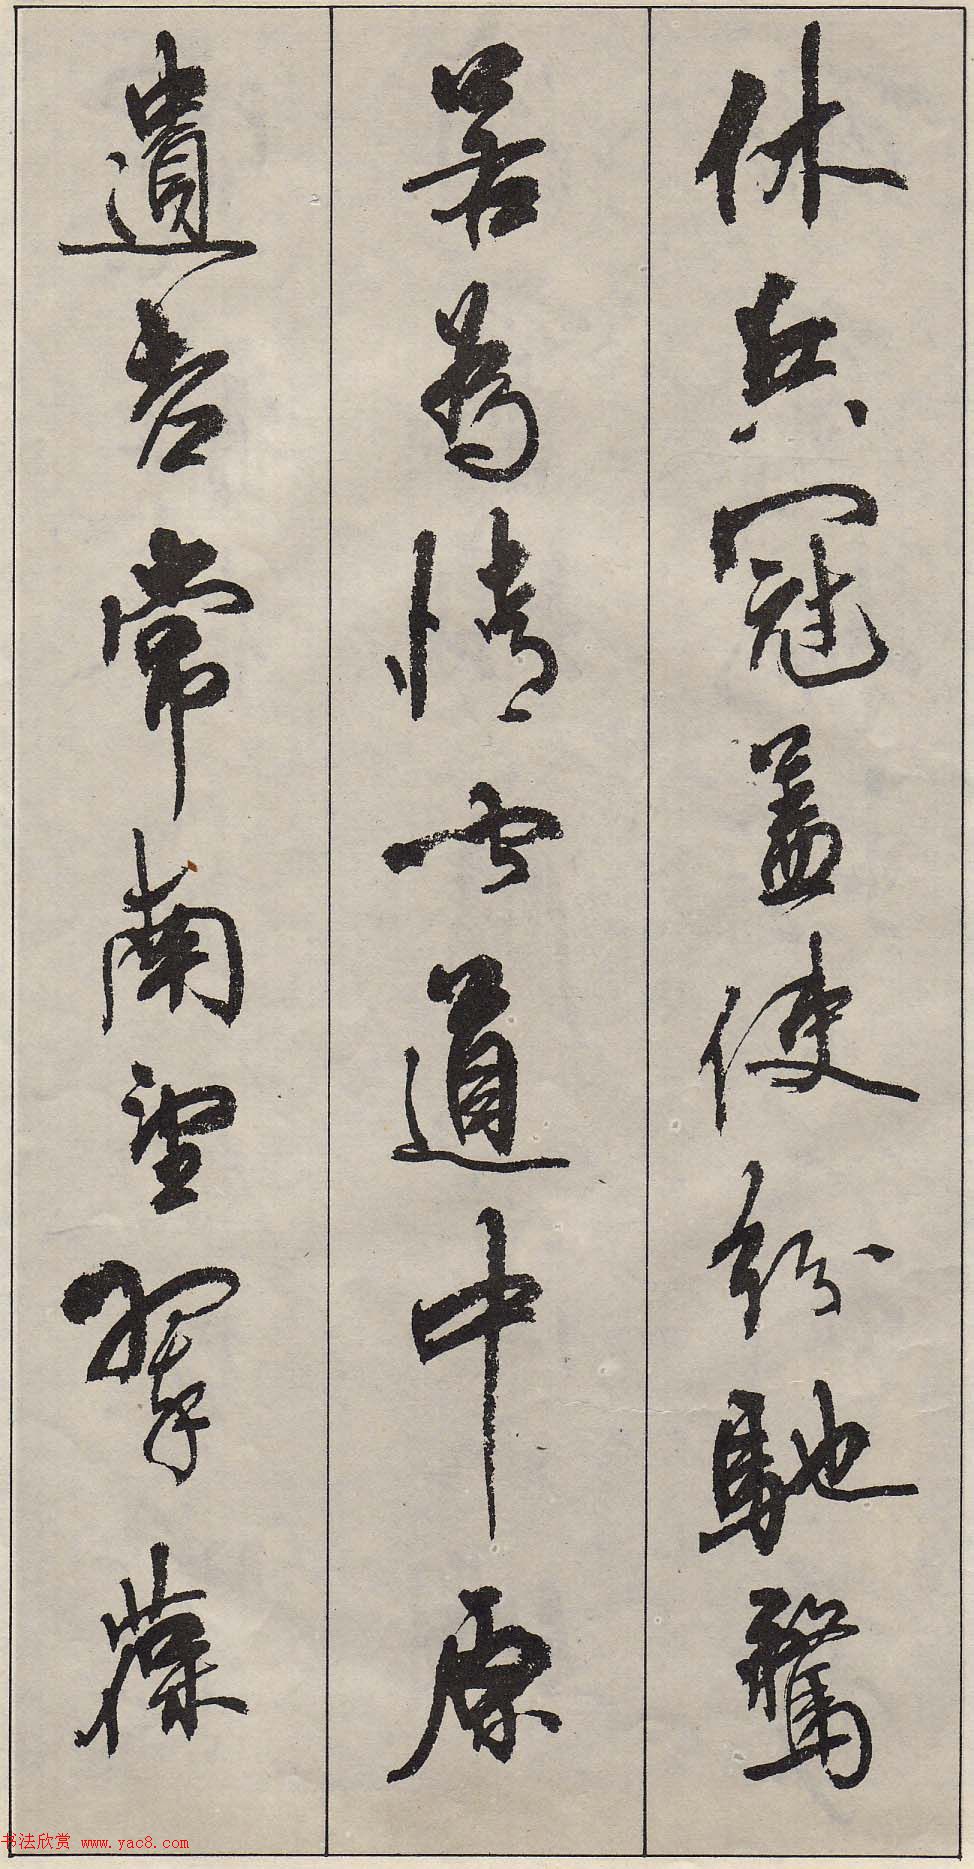 休兵冠盖使紛馳騖
若為情聞道中原
遺老常南望翠葆
书法欣赏 www.yac8.com